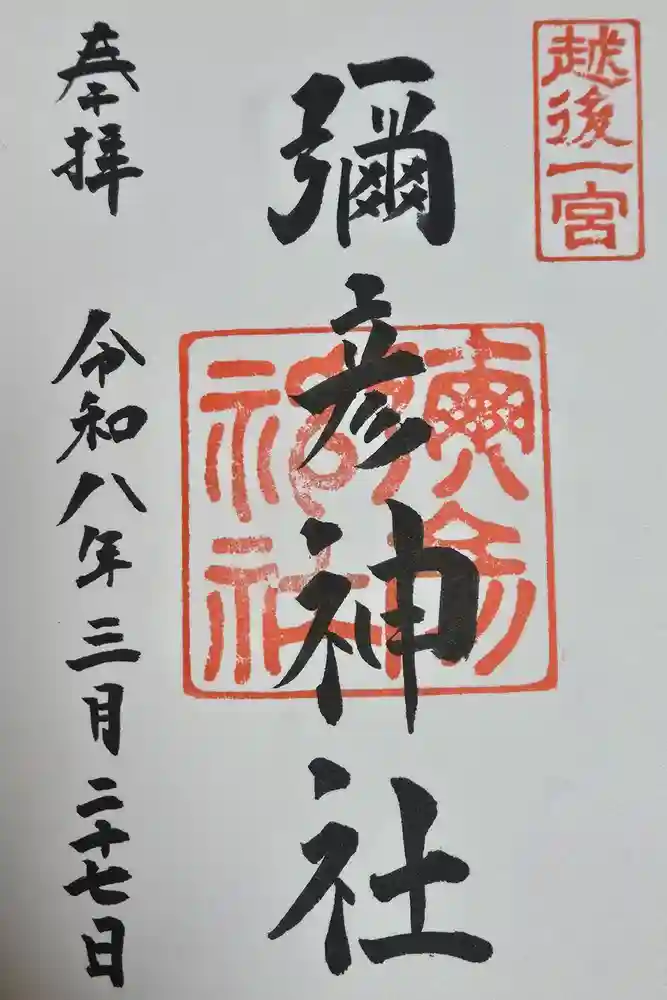 越後一宮
彌彦神社
彌彦神社
奉拝
令和八年三月二十七日